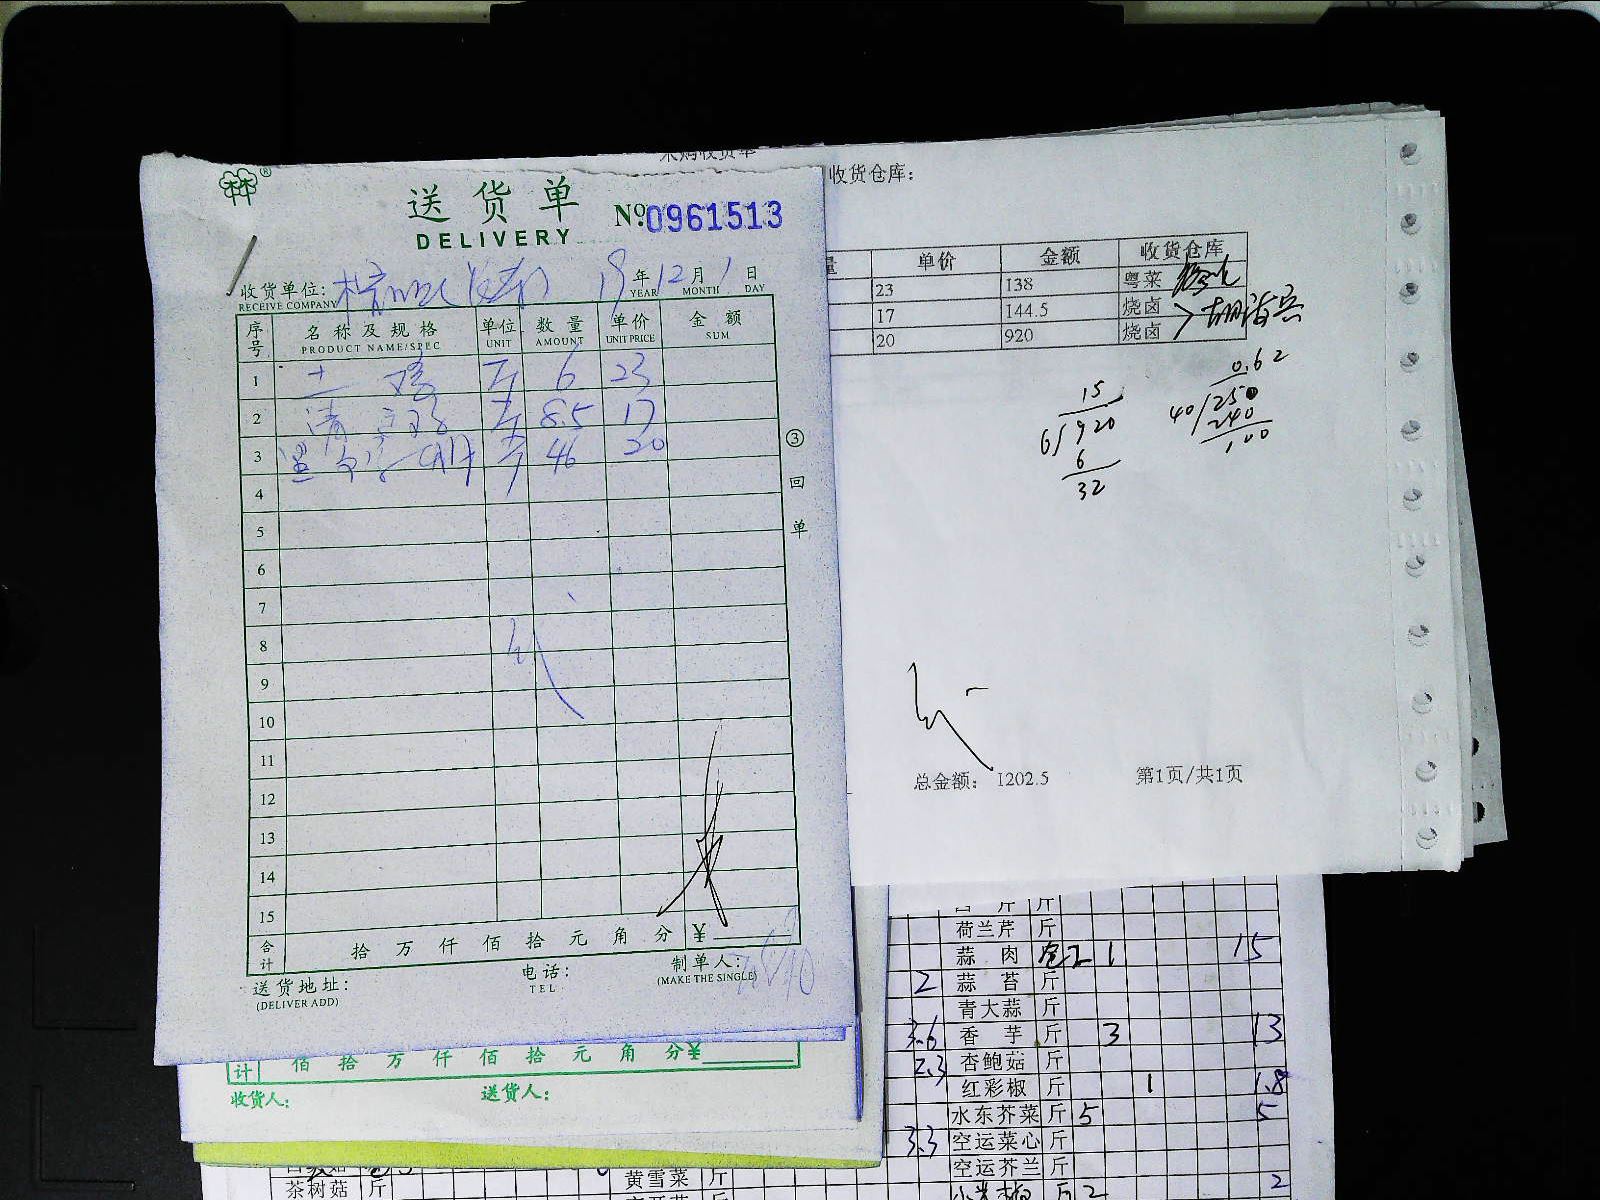 收货仓库：
送货单
DELIVERY
№ 0961513
收货单位：
RECEIVE COMPANY
19 年 12 月 1 日
YEAR MONTH DAY
序号 名称及规格 单位 数量 单价 金额
PRODUCT NAME/SPEC UNIT AMOUNT UNIT PRICE SUM
1 土鸡 斤 6 23
2 清 斤 8.5 17
3 斤 46 20
4
5
6
7
8
9
10
11
12
13
14
15
合计 拾 万 仟 佰 拾 元 角 分 ¥
送货地址：
(DELIVER ADD)
电话：
TEL
制单人：
(MAKE THE SINGLE)
③ 回单
量 单价 金额 收货仓库
23 138 粤菜
17 144.5 烧卤
20 920 烧卤
15
6 920
6
32
0.62
40 250
240
100
总金额： 1202.5 第1页/共1页
计 佰 拾 万 仟 佰 拾 元 角 分¥
收货人：
送货人：
荷兰芹 斤
蒜肉 1 15
2 蒜苔 斤
青大蒜 斤
3.6 香芋 斤 3 13
2.3 杏鲍菇 斤
红彩椒 斤 1 1.8
水东芥菜 斤 5 5
3.3 空运菜心 斤
空运芥兰 斤
2 2
黄雪菜 斤
茶树菇 斤